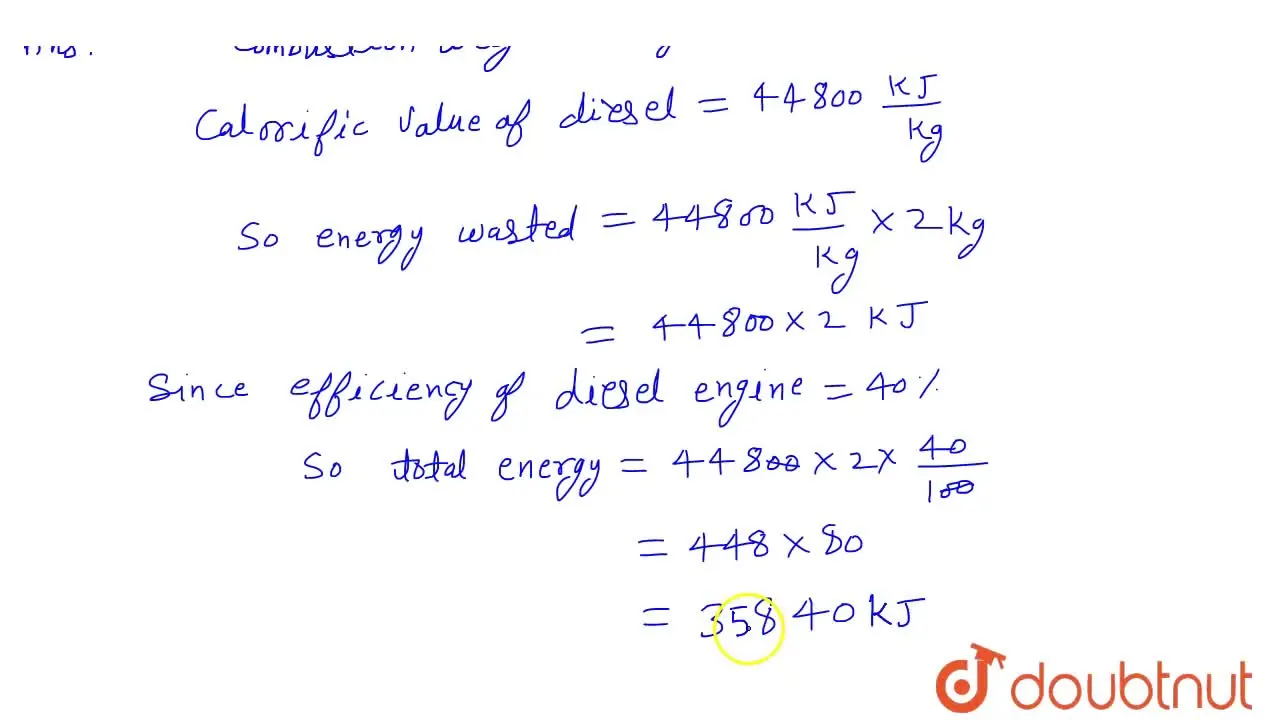 Calorific value of diesel = 44800 KJ/Kg
So energy wasted = 44800 KJ/Kg × 2 Kg
= 44800 × 2 KJ
Since efficiency of diesel engine = 40%
So total energy = 44800 × 2 × 40/100
= 448 × 80
= 35840 KJ
doubtnut